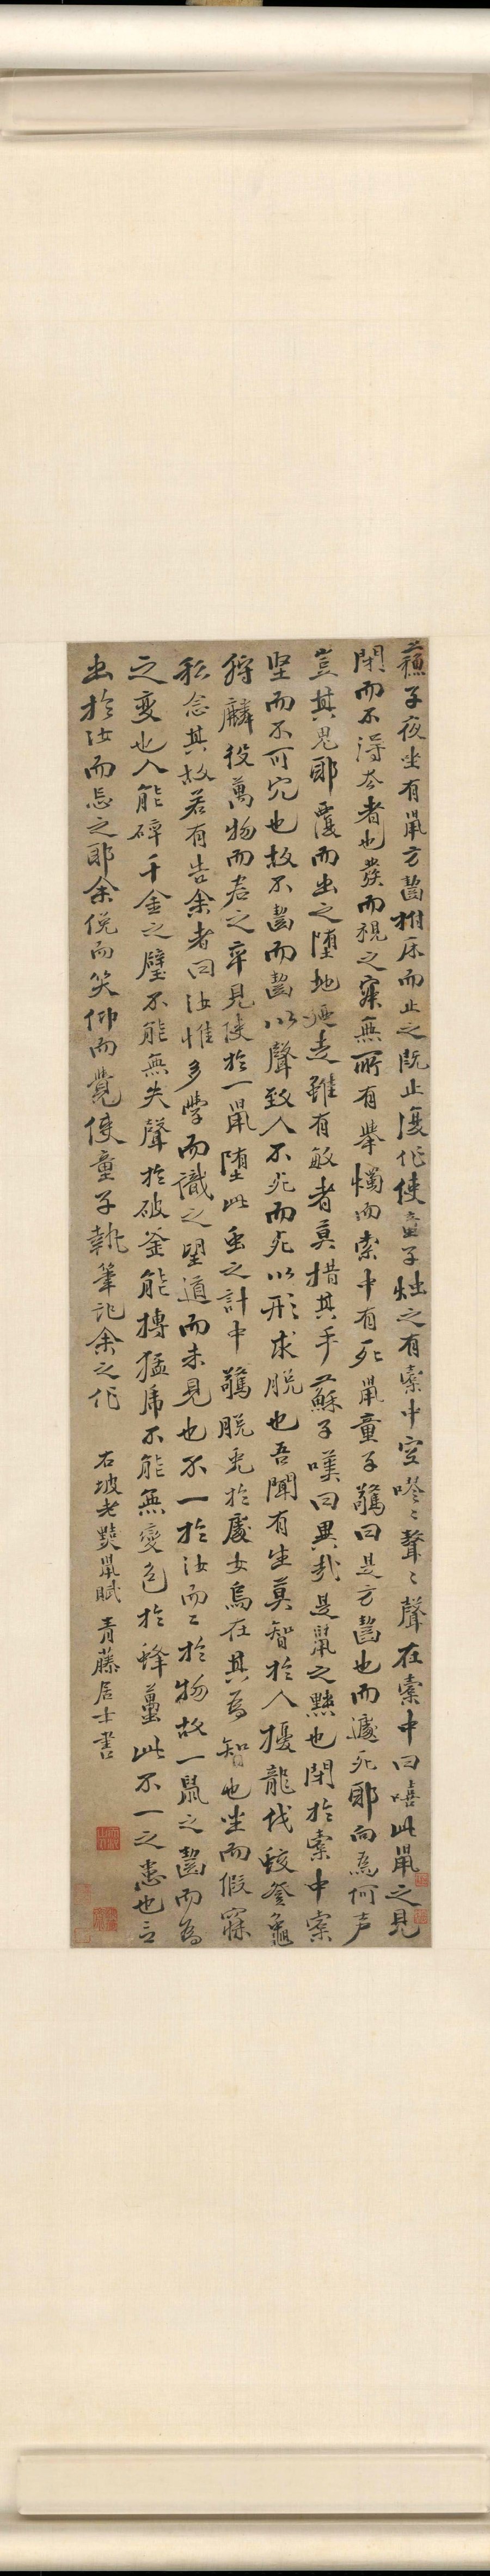 蘇子夜坐有鼠方齧拊床而止之既止復作使童子燭之有橐中空嘐〻聱〻聲在橐中曰嘻此鼠之見
閉而不得去者也發而視之寂無所有舉燭而索中有死鼠童子驚曰是方齧也而遽死耶向為何声
豈其鬼耶覆而出之墮地乃走雖有敏者莫措其手蘇子嘆曰異哉是鼠之黠也閉於橐中橐
堅而不可穴也故不齧而齧以聲致人不死而死以形求脫也吾聞有生莫智於人擾龍伐蛟登龜
狩麟役萬物而君之卒見使於一鼠墮此虫之計中驚脫兔於處女烏在其為智也坐而假寐
私念其故若有告余者曰汝惟多學而識之望道而未見也不一於汝而二於物故一鼠之齧而為
之變也人能碎千金之璧不能無失聲於破釜能搏猛虎不能無變色於蜂蠆此不一之患也言
出於汝而忘之耶余俛而笑仰而覺使童子執筆記余之作 右坡老黠鼠賦 青藤居士書